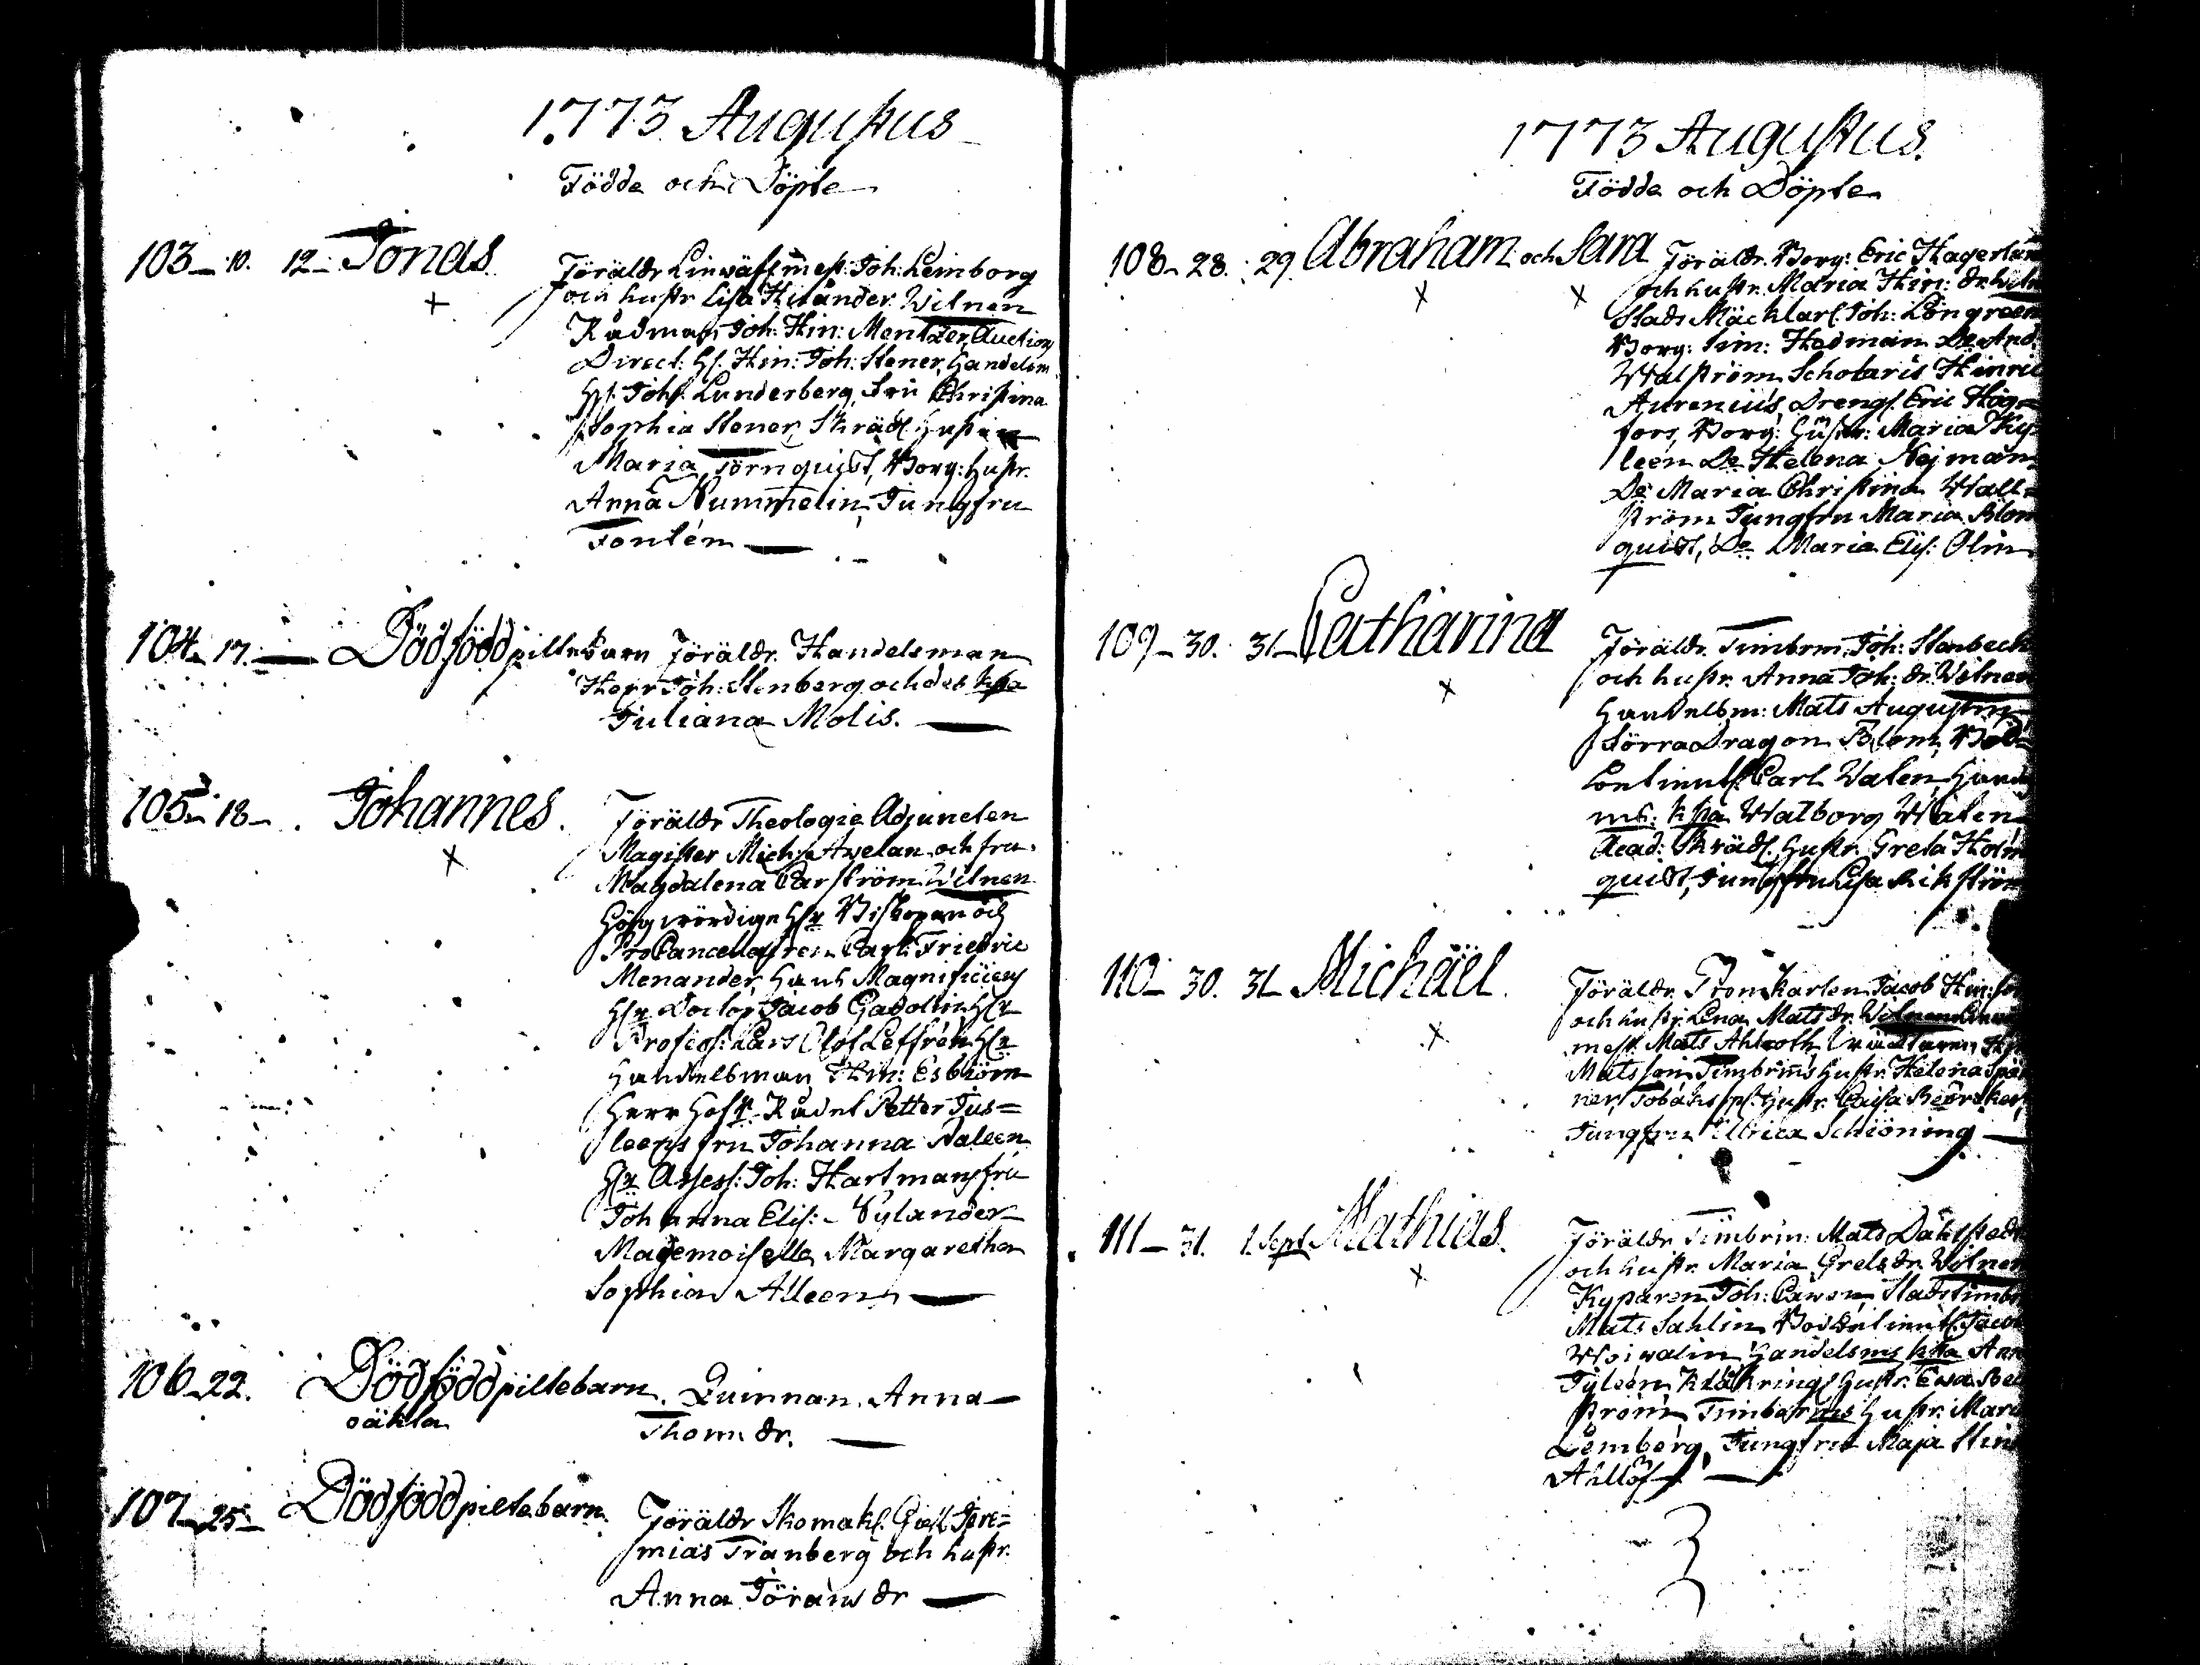 1773 Augustus
Födde och Döpte
103 10. 12 Jonas
Föräldr Linwäfm̄est: Joh: Lemborg
och hustr Lisa Wittnen
Rådman Joh: Hin: Mentzer, Auction
Direct: Hr. Hin: Joh: Stener, Handelsm
Hr. Joh: Lunderberg, Fru Christina
Sophia Stener, Skräd: Hustr
Maria Törnquist, Borg: Hustr.
Anna Nummelin, Jungfru
Fonlén
104 17. Dödfödd piltebarn Föräldr. Handelsman
Herr Joh: Stenberg och des k:sa
Juliana Molis.
105 18 Johannes.
Föräldr Theologie Adjuncten
Magister Mich: Awelan och fru
Magdalena Carström Wittnen
Högwördige Hr Biskopen och
ProCancelleren Carl Friedric
Menander, Hans Magnificiens
Hr Doctor Jacob Gadolin Hr
Profess: Lars Olof Leffrén Hr
Handelsman Hin: Esbiörn
Herr Hofr. Rådet Petter Jus=
leens fru Johanna Naleen
Hr Assess: Joh: Hartmans fru
Johanna Elis: Wylander
Mademoiselle Margaretha
Sophia Alleen
106 22. Dödfödd piltebarn. Quinnan Anna
oäkta Thom: dr.
107 25 Dödfödd piltebarn.
Föräldr Skomak: Jere=
mias Tranberg och hustr.
Anna Görans dr
1773 Augustus.
Födde och Döpte
108 28. 29 Abraham och Sara Föräldr. Borg: Eric Hagerlun
och hustr. Maria Hin: dr. Wittn
Stads Mäcklar: Joh: Löngreen
Borg: Sim: Hedman Do And.
Walström Scholaris Hinric
Aurenius, Dreng: Eric Hög=
fors, Borg: Hustr: Maria Ky=
leen Do Helena Nejman
Do Maria Christina Wall=
ström Jungfru Maria Blom
quist, Do Maria Elis: Olin
109 30. 31 Catharina
Föräldr. Timbrm. Joh: Stenbeck
och hustr. Anna Joh: dr. Wittnen
Handelsm: Mats Augustin
Förra Dragon Blom, Bod=
betient: Carl Walen, Hand
ms: k:sa Walborg Walen
Acad: Skräd: Hustr. Greta Holm
quist, Jungfru Lisa Rikström
110 30. 31 Michaël.
Föräldr. Tromkarlen Jacob Hin:son
och hustr Lena Mats dr. Wittnen
mest. Mats Ahlroth
Matsson Timbrm̄s hustr. Helena
ner, Tobaks sp: Hustr. Caisa
Jungfru Ulrica Schiöning
111 31. 1. Sept Mathias.
Föräldr Timbrm: Mats Dahlstedt
och hustr. Maria Grels dr. Wittnen
Kyparen Joh: Stadstimbr
Mats Sahlin, Bodbetient: Jacob
Handelsms k:sa Ann
Tyleen Hustr. Ewa
ström Timberms Hustr. Maria
Lemberg, Jungfru Maja Stina
Ahllöf